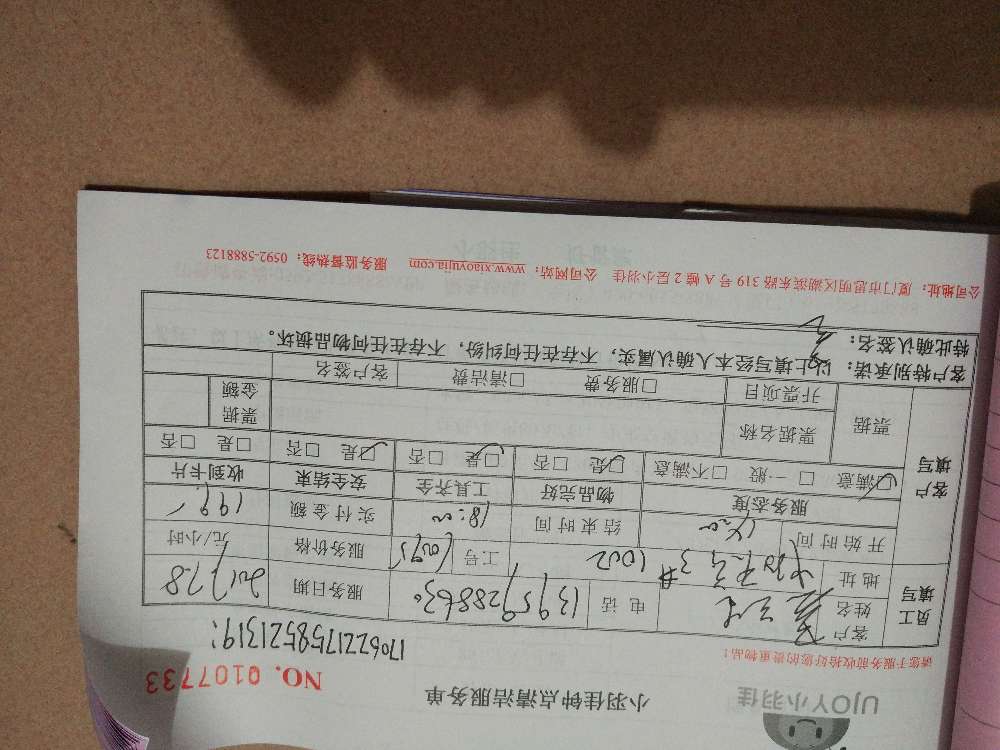 UJOY小羽佳 小羽佳钟点清洁服务单 NO. 0107733
请您于服务前收拾好您的贵重物品！ 1706221758521319
员工填写 客户姓名 电话 13959288630 服务日期 2017.7.8
地址 3# 1002 工号 服务价格 元/小时
开始时间 14:00 结束时间 18:00 实付金额 199
客户填写 服务态度 物品完好 工具齐全 安全结束 收到卡片
☑满意 □一般 □不满意 ☑是 □否 ☑是 □否 ☑是 □否 □是 □否
票据 票据名称 票据金额
开票项目 □服务费 □清洁费 客户签名
客户特别承诺：以上填写经本人确认属实，不存在任何纠纷，不存在任何物品损坏。
特此确认签名：
公司地址：厦门市思明区湖滨东路 319 号 A 幢 2 层小羽佳 公司网站：www.xiaoyujia.com 服务监督热线：0592-5888123